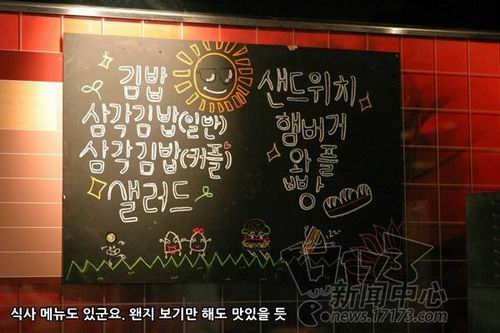 김밥
삼각김밥(일반)
삼각김밥(커플)
샐러드
샌드위치
햄버거
와플
빵
17173
新闻中心
news.17173.com
식사 메뉴도 있군요. 왠지 보기만 해도 맛있을 듯